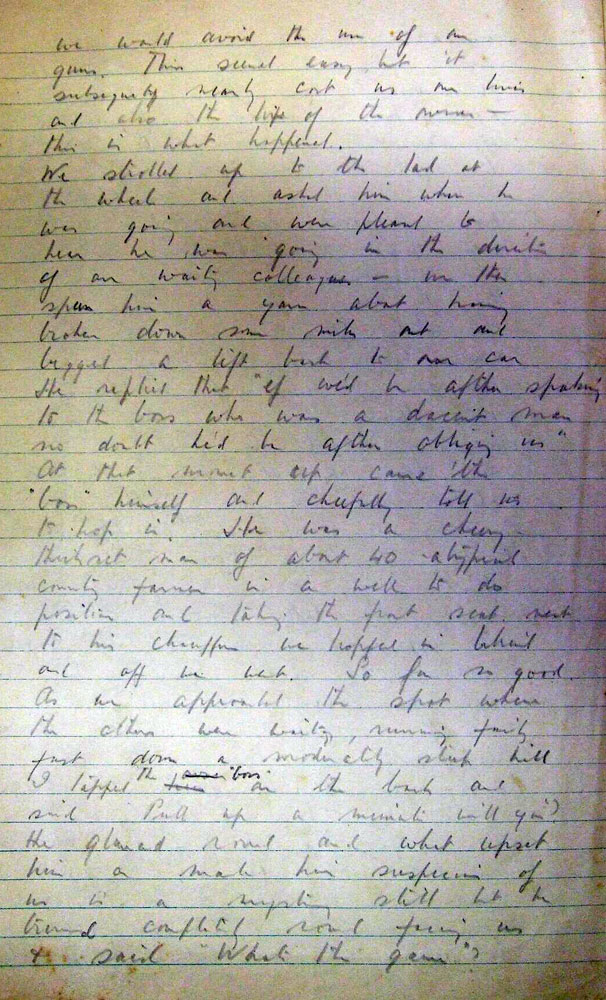 we would avoid the use of our
guns. This seemed easy, but it
subsequently nearly cost us our lives
and also the life of the owner —
this is what happened.
We strolled up to the lad at
the wheel and asked him where he
was going and were pleased to
hear he was going in the direction
of our waiting colleagues — we then
spun him a yarn about having
broken down some miles out and
begged a lift back to our car
He replied that "if we'd be after speaking
to the boss who was a daecint man
no doubt he'd be after obliging us"
At that moment up came the
"boss" himself and cheerfully told us
to hop in. He was a cheery
thickset man of about 40 - a typical
county farmer in a well to do
position and taking the front seat next
to his chauffeur we hopped in behind
and off we went. So far so good.
As we approached the spot where
the others were waiting, running fairly
fast down a moderately steep hill
I tapped the boss on the back and
said "Pull up a minute will you"?
He glanced round and what upset
him or made him suspicious of
us is a mystery still but he
turned completely round facing us
& said "What's the game"?